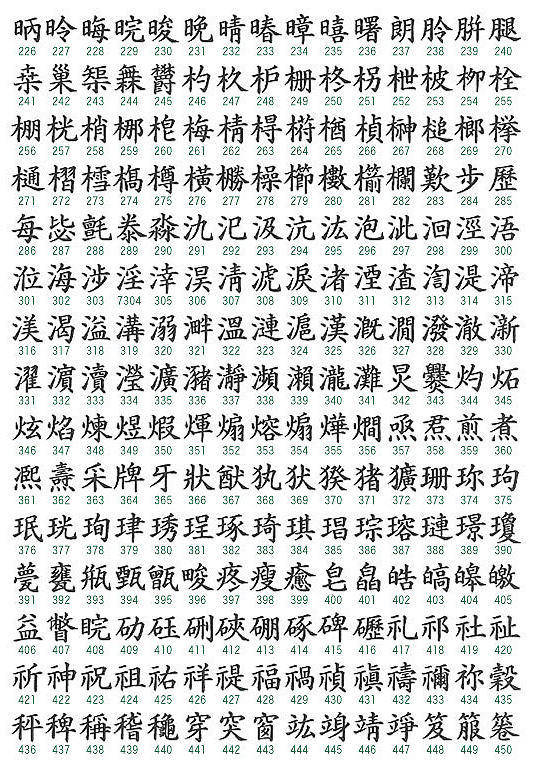 昞 昤 晦 晥 晙 晩 晴 暙 暲 暿 曙 朗 朎 腁 腿
226 227 228 229 230 231 232 233 234 235 236 237 238 239 240
桒 巢 栔 橆 欝 杓 杦 枦 柵 柊 柺 枻 柀 栁 栓
241 242 243 244 245 246 247 248 249 250 251 252 253 254 255
棚 桄 梢 梛 梍 梅 棈 棏 椨 楢 楨 榊 槌 榔 榉
256 257 258 259 260 261 262 263 264 265 266 267 268 269 270
樋 槢 樰 樢 樽 橫 橳 橾 櫛 櫢 櫤 欄 歎 步 歷
271 272 273 274 275 276 277 278 279 280 281 282 283 284 285
每 毖 氈 桊 淼 氿 汜 汲 沆 汯 泡 泚 洄 涇 浯
286 287 288 289 290 291 292 293 294 295 296 297 298 299 300
涖 海 涉 淫 涬 淏 淸 淲 淚 渚 湮 渣 渹 湜 渧
301 302 303 7304 305 306 307 308 309 310 311 312 313 314 315
渼 渴 溢 溝 溺 溿 溫 漣 滬 漢 漑 澗 潑 澈 漸
316 317 318 319 320 321 322 323 324 325 326 327 328 329 330
濯 濵 瀆 瀅 瀇 瀦 瀞 瀕 瀨 瀧 灘 炅 爨 灼 炻
331 332 333 334 335 336 337 338 339 340 341 342 343 344 345
炫 焰 煉 煜 煆 煇 煽 熔 煽 燁 燗 烝 焄 煎 煮
346 347 348 349 350 351 352 353 354 355 356 357 358 359 360
凞 燾 采 牌 牙 狀 猷 犱 犾 猤 猪 獷 珊 珎 玽
361 362 363 364 365 366 367 368 369 370 371 372 373 374 375
珉 珖 珣 珒 琇 珵 琢 琦 琪 琩 琮 瑢 璉 璟 瓊
376 377 378 379 380 381 382 383 384 385 386 387 388 389 390
甍 甕 甁 甄 甑 畯 疼 瘦 癒 皂 皛 皓 皜 皞 皦
391 392 393 394 395 396 397 398 399 400 401 402 403 404 405
益 瞥 睆 劯 砡 硎 硤 硼 硺 碑 礰 礼 祁 社 祉
406 407 408 409 410 411 412 413 414 415 416 417 418 419 420
祈 神 祝 祖 祐 祥 禔 福 禍 禎 禛 禱 禰 祢 穀
421 422 423 424 425 426 427 428 429 430 431 432 433 434 435
秤 稗 稱 稽 穐 穿 突 窗 竑 竫 靖 竫 笈 箙 簔
436 437 438 439 440 441 442 443 444 445 446 447 448 449 450